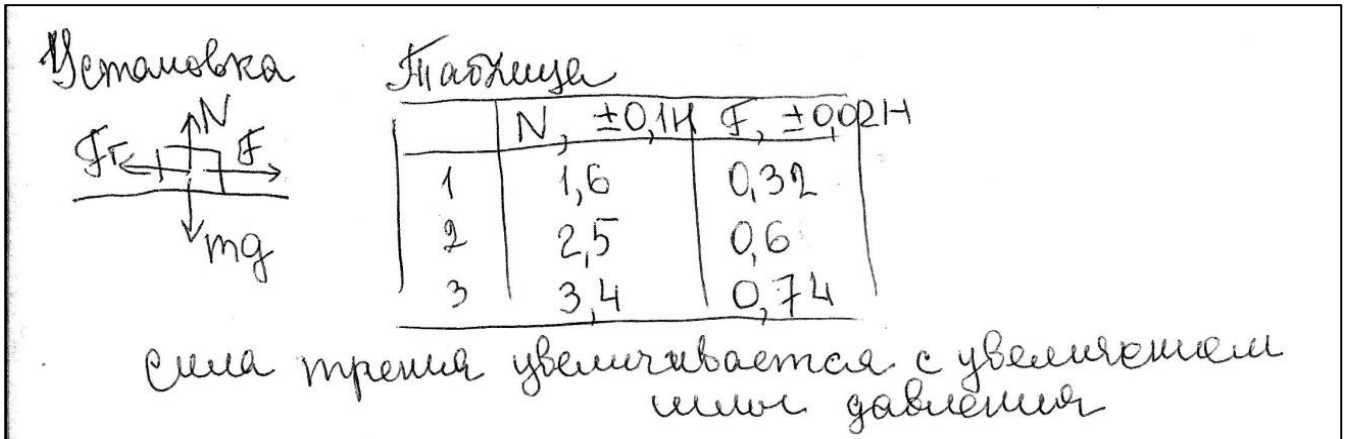 Установка
Таблица
N
Fт
F
mg
N, ±0,1Н F, ±0,02Н
1 1,6 0,32
2 2,5 0,6
3 3,4 0,74
сила трения увеличивается с увеличением
силы давления